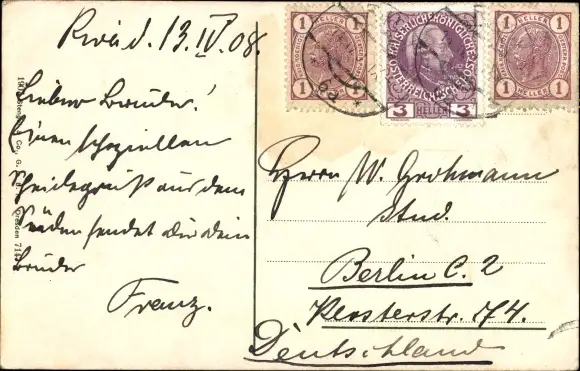 Riva d. 13. IV. 08.
Lieber Bruder!
Einen speziellen
Heilsgruß aus dem
Süden sendet Dir Dein
Bruder
Franz.
1 HELLER 1
1 1
KAISERLICHE KÖNIGLICHE
ÖSTERREICHISCHE POST
3 HELLER 3
1 HELLER 1
1 HELLER 1
Herrn W. Grohmann
Stud.
Berlin C. 2
Klosterstr. 74.
Deutschland